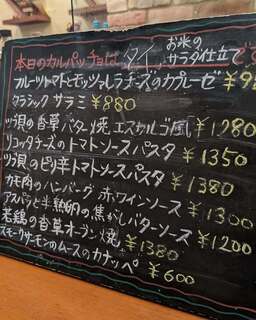 本日のカルパッチョは タイ 、お米のサラダ仕立て
フルーツトマトとモッツァレラチーズのカプレーゼ ¥9
クラシック サラミ ¥880
ツブ貝の香草バター焼、エスカルゴ風 ¥1280
リコッタチーズのトマトソースパスタ ¥1350
ツブ貝のピリ辛トマトソースパスタ ¥1380
カモ肉のハンバーグ 赤ワインソース ¥1300
アスパラと半熟卵の焦がしバターソース ¥1200
若鶏の香草オーブン焼 ¥1380
スモークサーモンのムースのカナッペ ¥600